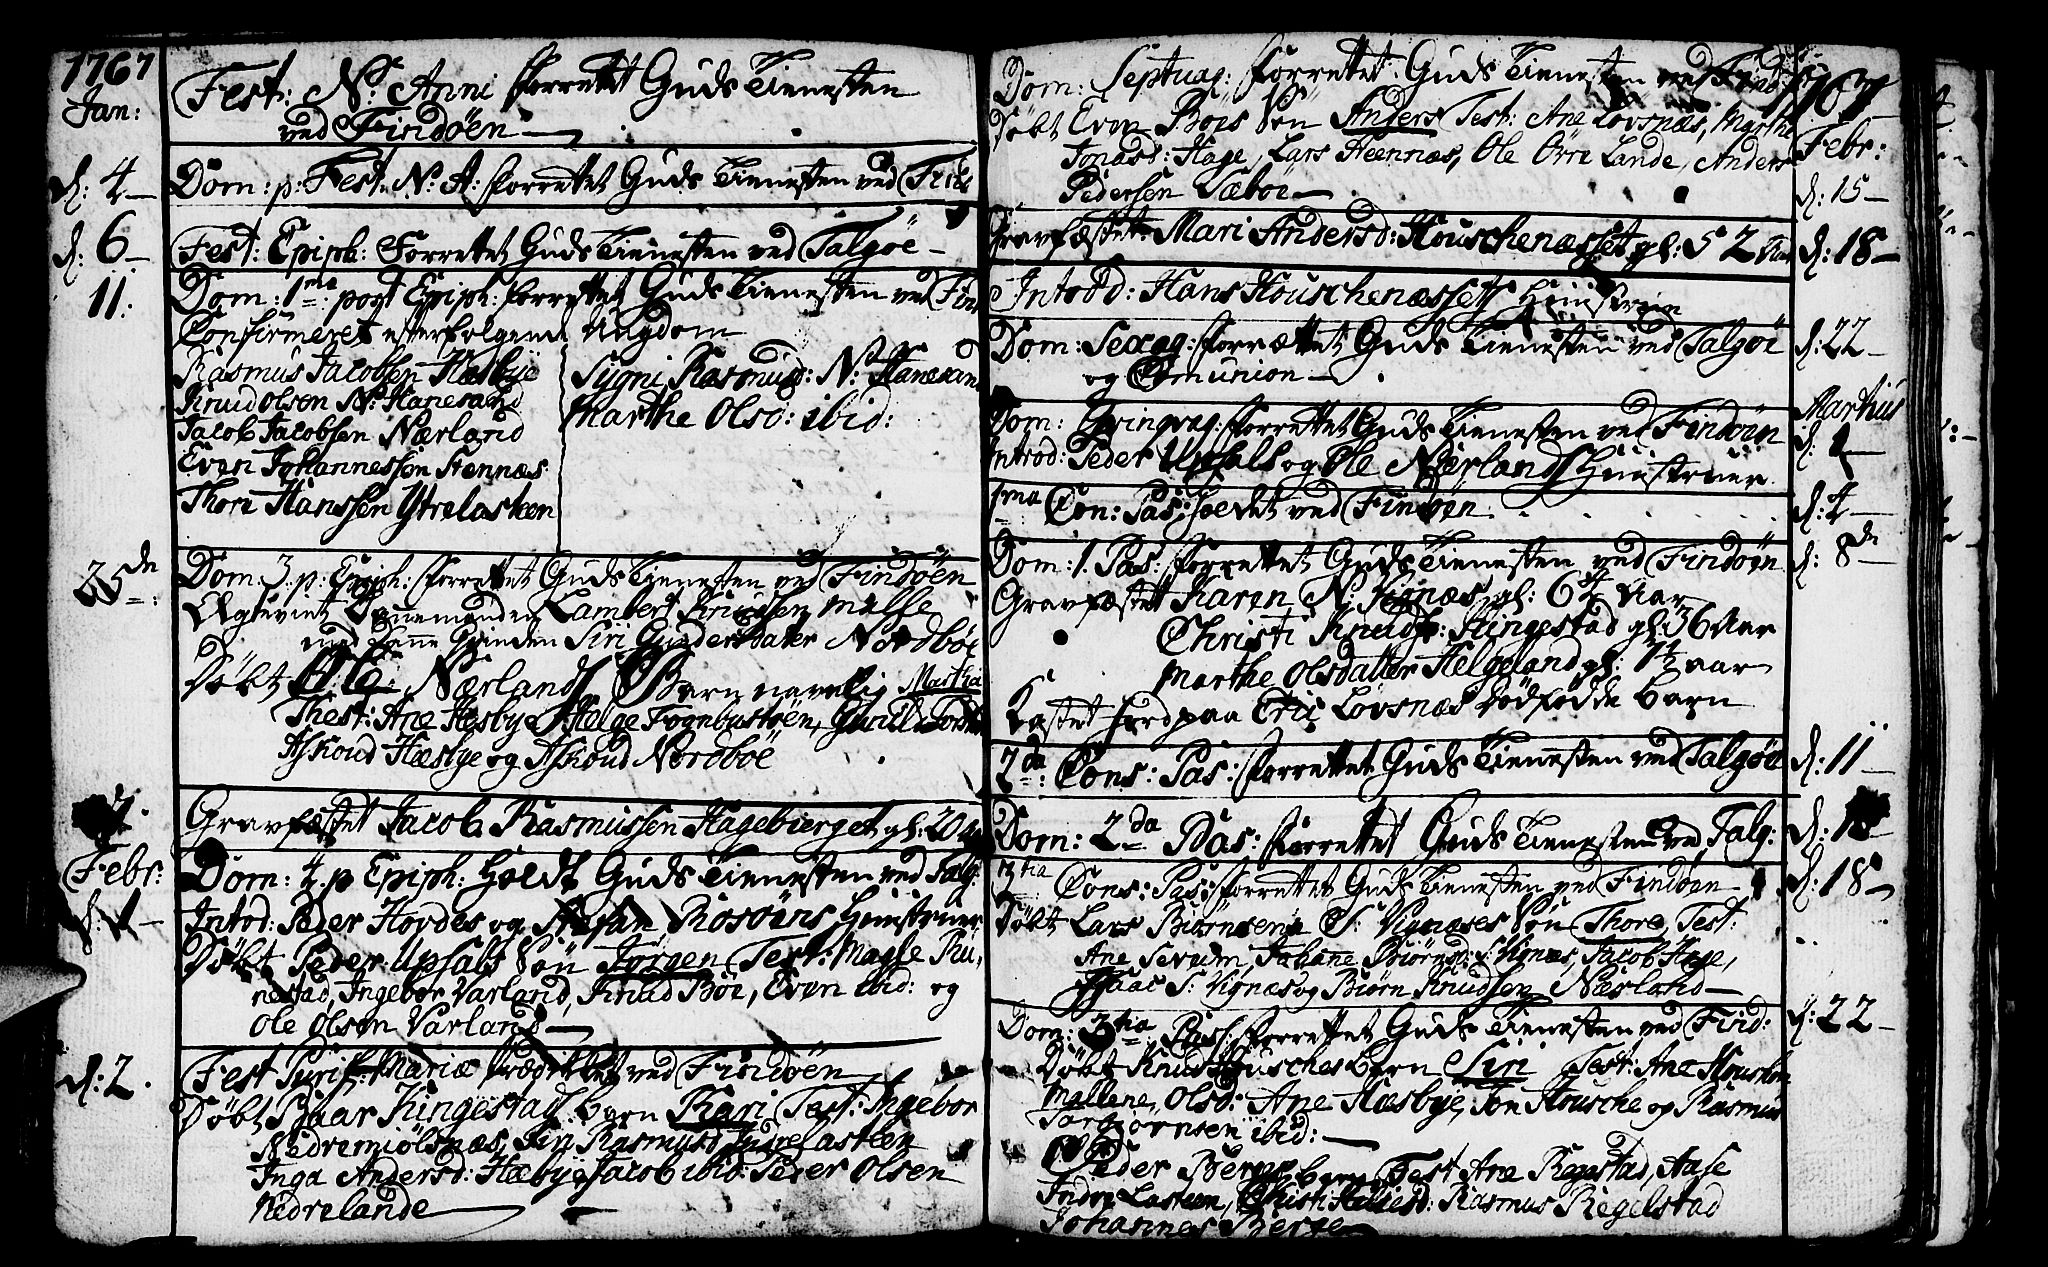 1767
Jan:
Fest: N: Anni forrettet Guds Tienesten
ved Findöen
d: 4 Dom: p: Fest: N: A: forrettet Guds Tienesten ved Find
d: 6 Fest: Epiph: Forrettet Guds Tienesten ved Talgöe
11. Dom: 1ma post Epiph: forrettet Guds Tienesten ved Find
Confirmeret efterfölgende Ungdom
Rasmus Jacobsen Hæsbye
Knud Olsen N: Hanesand
Jacob Jacobsen Nærland
Even Johannessen Stennæs
Thore Hanssen Ytrelasteen
Sygni Rasmusd: N: Hanesand
Marthe Olsd: ibid:
25de Dom 3. p: Epiph: forrettet Guds Tienesten ved Findöen
Lambert Knudsen
Siri Gundersdater Nordböe
Döbt Nærlands Barn navnlig Martha
Thest: Ane Hæsbye, Helge Fognbustöen,
Askoud Hæsbye og Askoud Nordböe
Gravfæstet Jacob Rasmussen Hagebierget gl: 20
Febr:
d: 1 Dom: 4. p Epiph: Holdt Guds Tienesten ved Talg:
Intod: Peder Hovdes og Stefan Rosöens Huustruer
Döbt Peder Upsals Sön Jörgen Test: Magle Ru-
nestad, Ingebor Varland, Knud Böe, Even ibid: og
Ole Olsen Varland
d: 2. Fest Purif: Mariæ Prædikket ved Findöen
Döbt Kingestads barn Kari Test: Ingebor
Nedremiölsnæs, Siri Rasmusd Indrelasteen
Inga Andersd: Hæbye, Jacob ibid: Peder Olsen
Nedrelande
1767
Dom: Septuag: forrettet Guds Tienesten ved Find
Döbt Even Böes Sön Anders Test: Ane Lovsnæs, Marthe
Jonasd: Hage, Lars Steennæs, Ole Övre Lande, Anders
Pedersen Sæböe
Febr:
d: 15
Gravfæstet: Mari Andersd: Houschenæsset gl: 52 Aar d: 18
Introd: Hans Houschenæssets Huustrue
Dom: Sexag: forrættet Guds Tienesten ved Talgöe d: 22
og Comunion
Martius
Dom: Qvinqvag: forrettet Guds Tienesten ved Findöen d: 1
Introd: Peder Upsals og Ole Nærlands Huustruer
1ma Con: Pas: holdt ved Findöen d: 4
Dom: 1. Pas: forrettet Guds Tienesten ved Findöen d: 8de
Gravfæstet Karen N: Vignæs gl: 64 Aar
Christi Knudsd: Kingestad gl: 36 Aar
Marthe Olsdatter Helgeland gl: 1½ aar
Kastet jord paa Eric Lovsnæs dödfödde barn
2da Cons: Pas: forrettet Guds Tienesten ved Talgöe d: 11
Dom: 2da Pas: forrettet Guds Tienesten ved Talg: d: 15
3tia Cons: Pas: forrettet Guds Tienesten ved Findöen d: 18
Döbt Lars Biörnsens S: Vignæses Sön Thore, Test:
Ane Serum, Johane Biörnsd: S: Vignæs, Jacob Hage,
Isaac S: Vignæs og Biörn Knudsen Nærland
Dom: 3tia Pas: forrettet Guds Tienesten ved Find: d: 22
Döbt Knud Housches barn Siri Test: Ane Houschen
Mallene Olsd: Ane Hæsbye, Jon Housche og Rasmus
Torbiörnsen ibid:
Peder Berges barn Test Ane Regestad, Aase
Indre Lasteen, Rasmus Regelstad
Johannes Berge